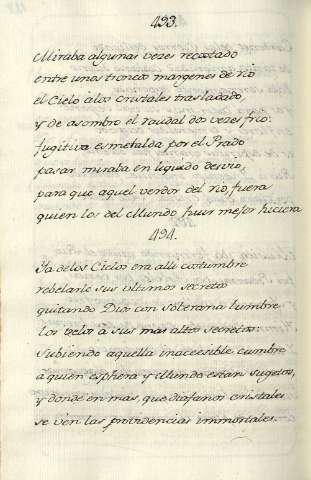 493.
Miraba algunas vezes recostado
entre unos troncos margenes de rio
el Cielo à los cristales trasladado,
y de asombro el raudal dos vezes frio:
fugitiva esmeralda por el Prado
pasar miraba en liquido desvio,
para que aquel verdor del rio, fuera
quien los del Mundo huir mejor hiciera
494.
Ya de los Cielos era alli costumbre
rebelarle sus ultimos secretos
quitando Dios con soberana lumbre
los velos à sus mas altos secretos:
subiendo aquella inaccesible cumbre
a quien esphera y Mundo estan sugetos,
y donde en mas, que diafanos cristales
se ven las providencias immortales.